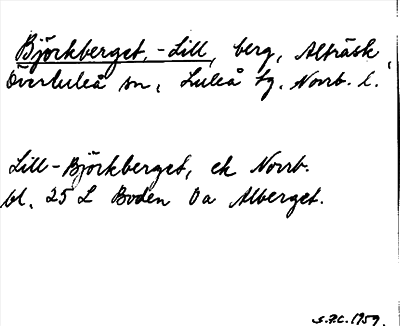 Björkberget, -Lill, berg, Alträsk,
Överluleå sn, Luleå tg. Norrb. l.
Lill-Björkberget, ek Norrb.
bl. 25 L Boden 0a Alberget.
S.F.C. 1959.